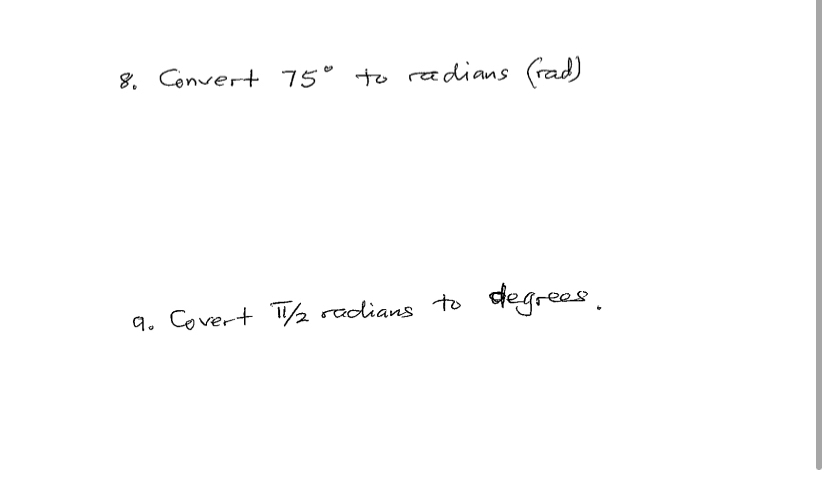 8. Convert 75° to radians (rad)
9. Covert π/2 radians to degrees.